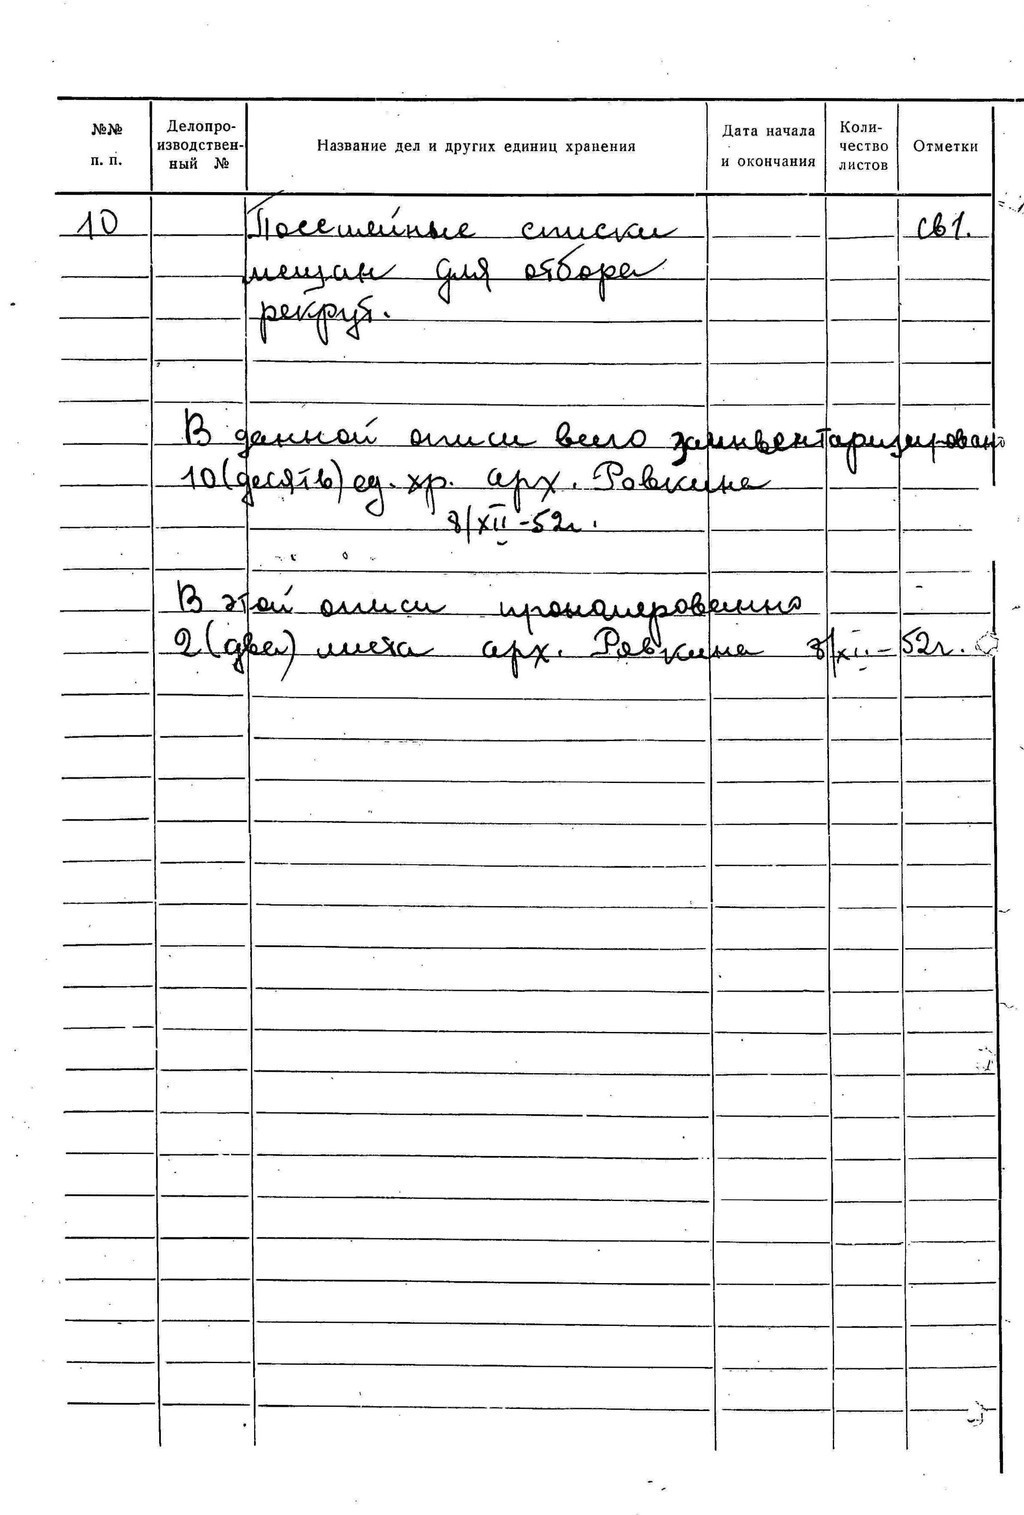 №№ п. п.
Делопро-
изводствен-
ный №
Название дел и других единиц хранения
Дата начала
и окончания
Коли-
чество
листов
Отметки
10 Посемейные списки св1.
мещан для отбора
рекрут.
В данной описи всего заинвентаризировано
10 (десять) ед. хр. арх. Ровкина
8/XII-52г.
В этой описи пронумерованно
2 (два) листа арх. Ровкина 8/XII-52г.